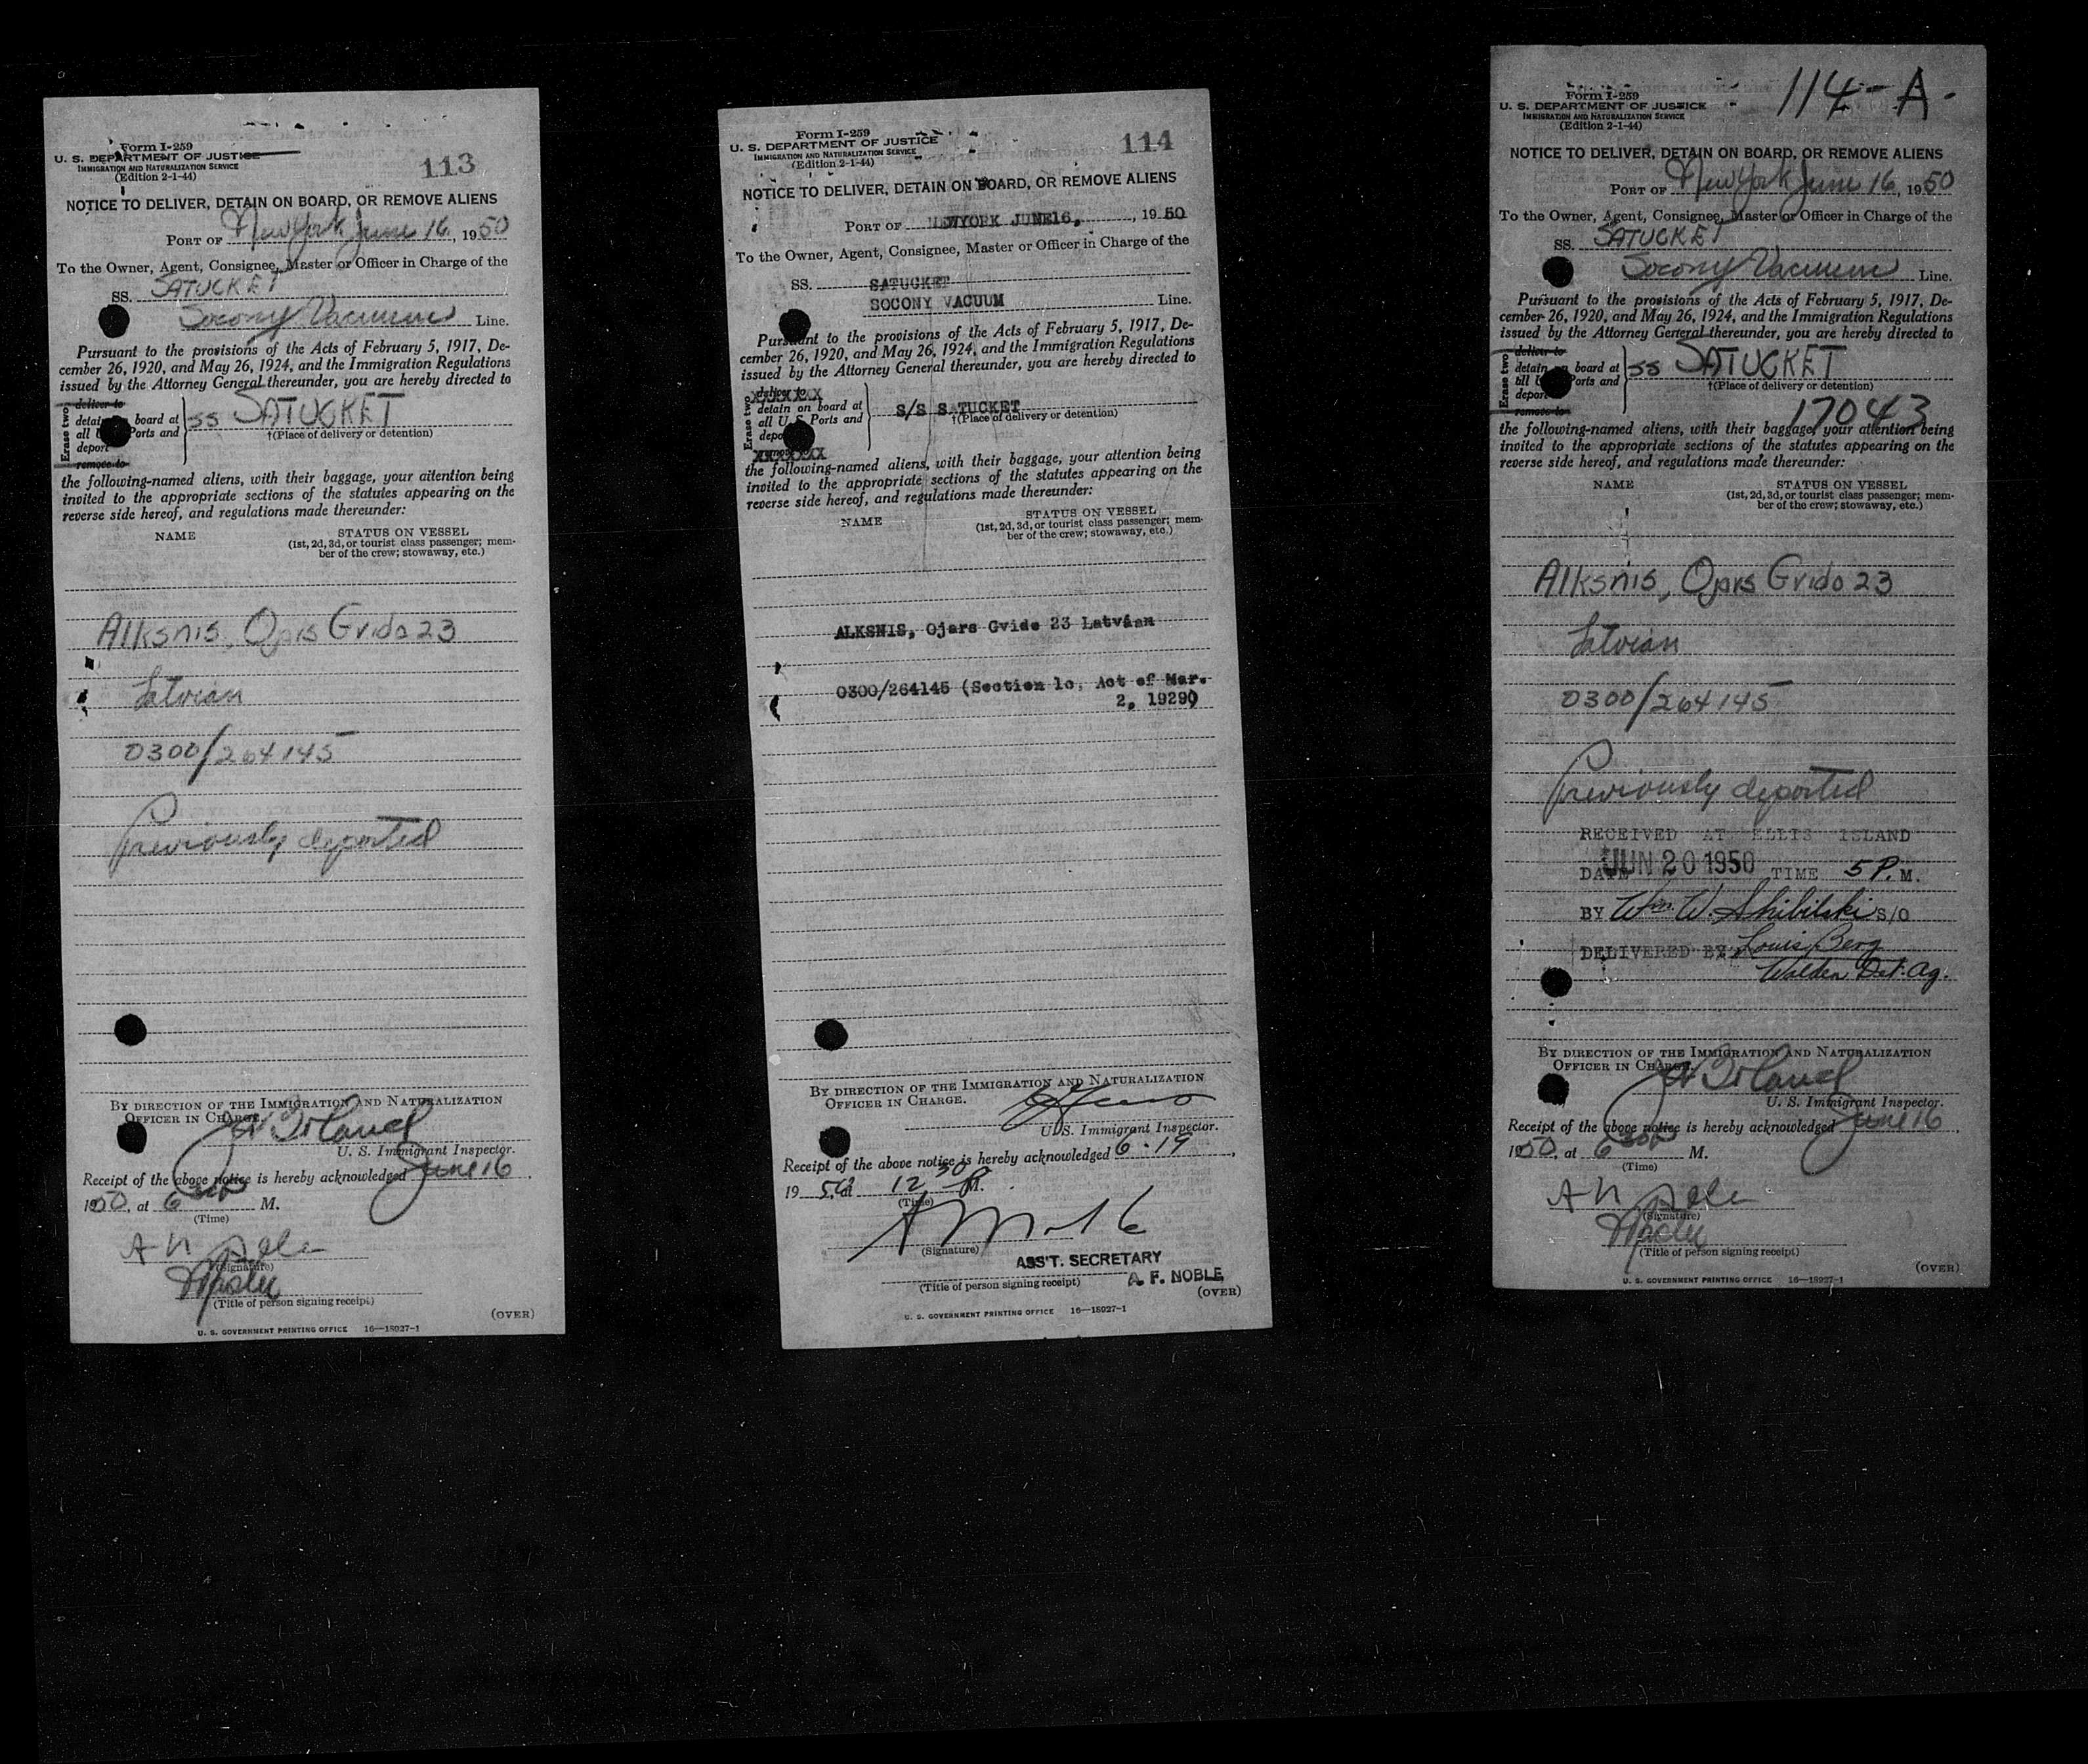 Form I-259
U. S. DEPARTMENT OF JUSTICE
IMMIGRATION AND NATURALIZATION SERVICE
(Edition 2-1-44)
113
NOTICE TO DELIVER, DETAIN ON BOARD, OR REMOVE ALIENS
PORT OF New York June 16, 1950
To the Owner, Agent, Consignee, Master or Officer in Charge of the
SS. SATUCKET
Socony Vacuum Line.
Pursuant to the provisions of the Acts of February 5, 1917, De-
cember 26, 1920, and May 26, 1924, and the Immigration Regulations
issued by the Attorney General thereunder, you are hereby directed to
Erase two
deliver to
detain board at
all U Ports and
deport
remove to
SS SATUCKET
†(Place of delivery or detention)
the following-named aliens, with their baggage, your attention being
invited to the appropriate sections of the statutes appearing on the
reverse side hereof, and regulations made thereunder:
NAME STATUS ON VESSEL
(1st, 2d, 3d, or tourist class passenger; mem-
ber of the crew; stowaway, etc.)
Alksnis, Ojars Gvido 23
Latvian
0300/264145
Previously deported
BY DIRECTION OF THE IMMIGRATION AND NATURALIZATION
OFFICER IN CHARGE.
U. S. Immigrant Inspector.
Receipt of the above notice is hereby acknowledged June 16,
1950, at 6 30 P M.
(Time)
(Signature)
Master
(Title of person signing receipt)
(OVER)
U. S. GOVERNMENT PRINTING OFFICE 16—18027-1
Form I-259
U. S. DEPARTMENT OF JUSTICE
IMMIGRATION AND NATURALIZATION SERVICE
(Edition 2-1-44)
114
NOTICE TO DELIVER, DETAIN ON BOARD, OR REMOVE ALIENS
PORT OF NEWYORK JUNE16, , 1950
To the Owner, Agent, Consignee, Master or Officer in Charge of the
SS. SATUCKET
SOCONY VACUUM Line.
Pursuant to the provisions of the Acts of February 5, 1917, De-
cember 26, 1920, and May 26, 1924, and the Immigration Regulations
issued by the Attorney General thereunder, you are hereby directed to
Erase two
deliver to
detain on board at
all U. S. Ports and
depo
XXXXXXX
S/S SATUCKET
†(Place of delivery or detention)
the following-named aliens, with their baggage, your attention being
invited to the appropriate sections of the statutes appearing on the
reverse side hereof, and regulations made thereunder:
NAME STATUS ON VESSEL
(1st, 2d, 3d, or tourist class passenger; mem-
ber of the crew; stowaway, etc.)
ALKSNIS, Ojars Gvide 23 Latvian
0300/264145 (Section 1c, Act of Mar.
2, 1929)
BY DIRECTION OF THE IMMIGRATION AND NATURALIZATION
OFFICER IN CHARGE.
U. S. Immigrant Inspector.
Receipt of the above notice is hereby acknowledged 6-19,
1950, at 12 30 P M.
(Time)
A Noble
(Signature)
ASS'T. SECRETARY
A. F. NOBLE
(Title of person signing receipt)
(OVER)
U. S. GOVERNMENT PRINTING OFFICE 16—18027-1
114-A-
Form I-259
U. S. DEPARTMENT OF JUSTICE
IMMIGRATION AND NATURALIZATION SERVICE
(Edition 2-1-44)
NOTICE TO DELIVER, DETAIN ON BOARD, OR REMOVE ALIENS
PORT OF New York June 16, 1950
To the Owner, Agent, Consignee, Master or Officer in Charge of the
SS. SATUCKET
Socony Vacuum Line.
Pursuant to the provisions of the Acts of February 5, 1917, De-
cember 26, 1920, and May 26, 1924, and the Immigration Regulations
issued by the Attorney General thereunder, you are hereby directed to
Erase two
deliver to
detain on board at
all U Ports and
deport
remove to
SS SATUCKET
†(Place of delivery or detention)
17043
the following-named aliens, with their baggage, your attention being
invited to the appropriate sections of the statutes appearing on the
reverse side hereof, and regulations made thereunder:
NAME STATUS ON VESSEL
(1st, 2d, 3d, or tourist class passenger; mem-
ber of the crew; stowaway, etc.)
Alksnis, Ojars Gvido 23
Latvian
0300/264145
Previously deported
RECEIVED AT ELLIS ISLAND
DATE JUN 20 1950 TIME 5 P. M.
BY Wm. W. Shibilski S/O
DELIVERED BY Louis Berg
Walden Det. Ag.
BY DIRECTION OF THE IMMIGRATION AND NATURALIZATION
OFFICER IN CHARGE.
U. S. Immigrant Inspector.
Receipt of the above notice is hereby acknowledged June 16,
1950, at 6 30 P M.
(Time)
(Signature)
Master
(Title of person signing receipt)
(OVER)
U. S. GOVERNMENT PRINTING OFFICE 16—18027-1